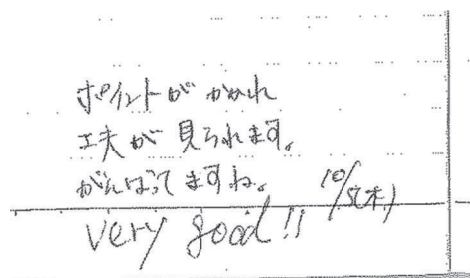 ポイントがかかれ
工夫が見られます。
がんばってますね。
10/5(木)
very good!!